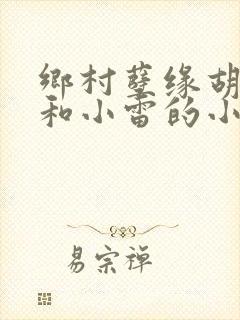 鄉村孽缘胡
和小雷的小
易宗禅